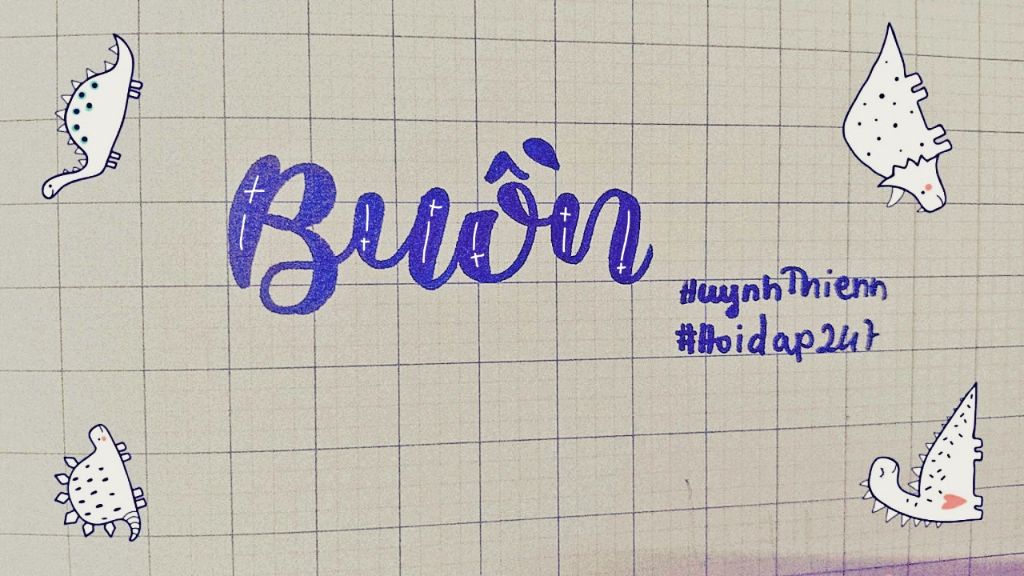 Buồn
HuynhThienn
#Hoidap247